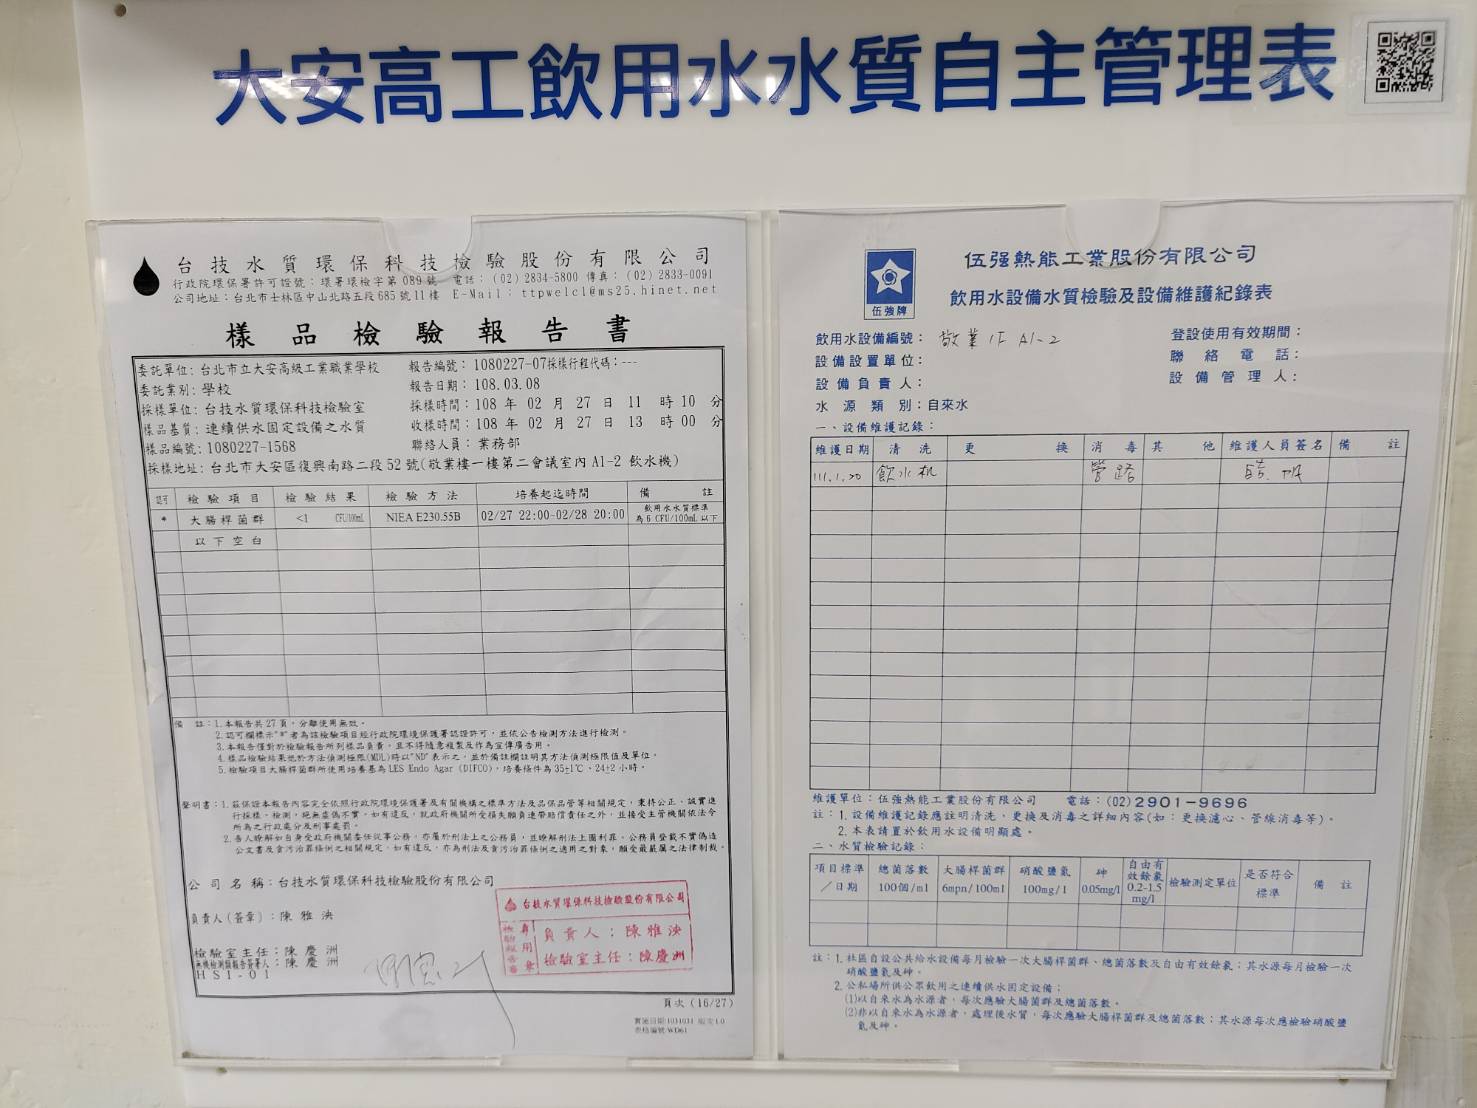 大安高工飲用水水質自主管理表
台技水質環保科技檢驗股份有限公司
行政院環保署許可證號：環署環檢字第 089 號 電話：(02) 2834-5800 傳真：(02) 2833-0091
公司地址：台北市士林區中山北路五段 685 號 11 樓 E-Mail：ttpwelcl@ms25.hinet.net
樣品檢驗報告書
委託單位：台北市立大安高級工業職業學校 報告編號：1080227-07 採樣行程代碼：---
委託業別：學校 報告日期：108.03.08
採樣單位：台技水質環保科技檢驗室 採樣時間：108 年 02 月 27 日 11 時 10 分
樣品基質：連續供水固定設備之水質 收樣時間：108 年 02 月 27 日 13 時 00 分
樣品編號：1080227-1568 聯絡人員：業務部
採樣地址：台北市大安區復興南路二段 52 號(敬業樓一樓第二會議室內 A1-2 飲水機)
認可 檢驗項目 檢驗結果 檢驗方法 培養起迄時間 備註
* 大腸桿菌群 <1 CFU/100mL NIEA E230.55B 02/27 22:00-02/28 20:00 飲用水水質標準
為 6 CFU/100mL 以下
以下空白
備註：1.本報告共 27 頁，分離使用無效。
2.認可欄標示"*"者為該檢驗項目經行政院環境保護署認證許可，並依公告檢測方法進行檢測。
3.本報告僅對於檢驗報告所列樣品負責，且不得隨意複製及作為宣傳廣告用。
4.樣品檢驗結果低於方法偵測極限(MDL)時以"ND"表示之，並於備註欄註明其方法偵測極限值及單位。
5.檢驗項目大腸桿菌群所使用培養基為 LES Endo Agar (DIFCO)，培養條件為 35±1℃、24±2 小時。
聲明書：1.茲保證本報告內容完全依照行政院環境保護署及有關機構之標準方法及品保品管等相關規定，秉持公正、誠實進
行採樣、檢測，絕無虛偽不實，如有違反，就政府機關所受損失願負連帶賠償責任之外，並接受主管機關依法令
所為之行政處分及刑事處罰。
2.吾人瞭解如自身受政府機關委任從事公務，亦屬於刑法上之公務員，並瞭解刑法上圖利罪、公務員登載不實偽造
公文書及貪污治罪條例之相關規定，如有違反，亦為刑法及貪污治罪條例之適用之對象，願受最嚴厲之法律制裁。
公司名稱：台技水質環保科技檢驗股份有限公司
負責人(簽章)：陳雅泱
檢驗室主任：陳慶洲
無機檢測類報告簽署人：陳慶洲
HSI-01
台技水質環保科技檢驗股份有限公司
檢驗報告專用章
負責人：陳雅泱
檢驗室主任：陳慶洲
頁次 (16/27)
表格編號:WD61
伍強牌
伍强熱能工業股份有限公司
飲用水設備水質檢驗及設備維護紀錄表
飲用水設備編號：敬業1F A1-2 登設使用有效期間：
設備設置單位： 聯絡電話：
設備負責人： 設備管理人：
水源類別：自來水
一、設備維護記錄：
維護日期 清洗 更換 消毒 其他 維護人員簽名 備註
111.1.20 飲水机 管路
維護單位：伍强熱能工業股份有限公司 電話：(02)2901-9696
註：1.設備維護記錄應註明清洗、更換及消毒之詳細內容(如：更換濾心、管線消毒等)。
2.本表請置於飲用水設備明顯處。
二、水質檢驗記錄：
項目標準／日期 總菌落數 100個/ml 大腸桿菌群 6mpn/100ml 硝酸鹽氮 100mg/l 砷 0.05mg/l 自由有效餘氯 0.2-1.5 mg/l 檢驗測定單位 是否符合標準 備註
註：1.社區自設公共給水設備每月檢驗一次大腸桿菌群、總菌落數及自由有效餘氯；其水源每月檢驗一次
硝酸鹽氮及砷。
2.公私場所供公眾飲用之連續供水固定設備：
(1)以自來水為水源者，每次應驗大腸菌群及總菌落數。
(2)非以自來水為水源者，處理後水質，每次應驗大腸桿菌群及總菌落數；其水源每次應檢驗硝酸鹽
氮及砷。